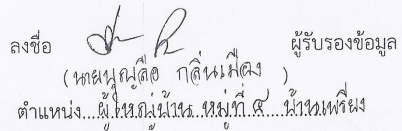 ลงชื่อ ผู้รับรองข้อมูล
(นายบุญลือ กลิ่นเมือง)
ตำแหน่ง....ผู้ใหญ่บ้าน หมู่ที่ ๔ บ้านเพรียง